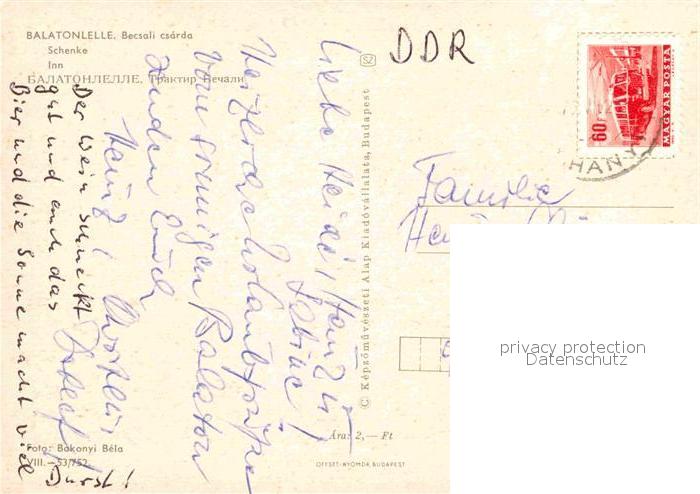 BALATONLELLE. Becsali csárda
Schenke
Inn
БАЛАТОНЛЕЛЛЕ. Трактир Бечали
DDR
60 f
MAGYAR POSTA
HANY
Familie
Liebe Heidi, Hans u.
Sabine!
Herzliche Urlaubsgrüße
vom sonnigen Balaton
senden Euch
Heinz
Der Wein schmeckt
gut und auch das
Bier und die Sonne macht viel
Durst!
© Képzőművészeti Alap Kiadóvállalata, Budapest
SZ
Ára: 2,— Ft
OFFSET-NYOMDA, BUDAPEST
Foto: Bakonyi Béla
VIII.—53/752
privacy protection
Datenschutz